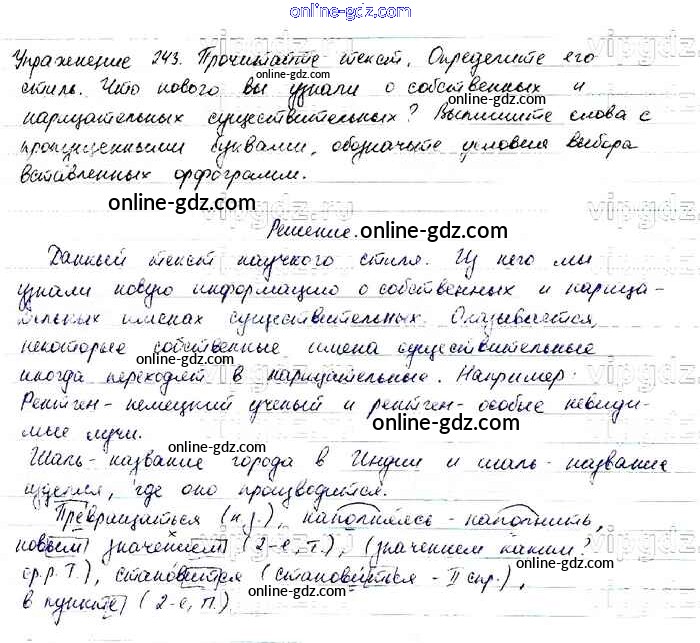 online-gdz.com
Упражнение 243. Прочитайте текст. Определите его
online-gdz.com
стиль. Что нового вы узнали о собственных и
online-gdz.com
нарицательных существительных? Выпишите слова с
пропущенными буквами, обозначьте условия выбора
вставленных орфограмм.
online-gdz.com
Решение. online-gdz.com
Данный текст научного стиля. Из него мы
узнали новую информацию о собственных и нарица-
тельных именах существительных. Оказывается,
некоторые собственные имена существительные
online-gdz.com
иногда переходят в нарицательные. Например:
Рентген - немецкий ученый и рентген - особые невиди-
мые лучи.
online-gdz.com
Шаль - название города в Индии и шаль - название
изделия, где оно производится.
Превращаться (н.з.), наполнялась - наполнить,
новым значением (2-е, т.), (значением каким?
ср.р. Т.), становится (становиться - II спр.),
в пункте (2-е, П.)
online-gdz.com